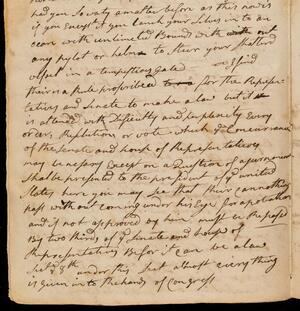 had you So waty a matter before as this now is
if you Except of it you Lanch your Selves in to an
ocan with unlimeted Bounds with out
any pylot or helm to Steer your Shatterd
vessel in a tempestious Gale I find
thair is a Rule proscribed for the Represen-
tatives and Senate to make a law but it
is attended with Difficulty and perplexity Every
order, Resolution or vote which ye Concurrance
of the Senate and house of Representatives
may be nessary Except on a Question of ajournment
shall be presented to the president of ye united
States here you may See that thier cannothing
pass with out coming under his Eye for aprobation
and if not approved by him must be Repased
By two thirds of ye Senate and house of
Representatives Before it can be a law
Sect 8th under this Sect almost Every thing
is Given in to the hands of Congress